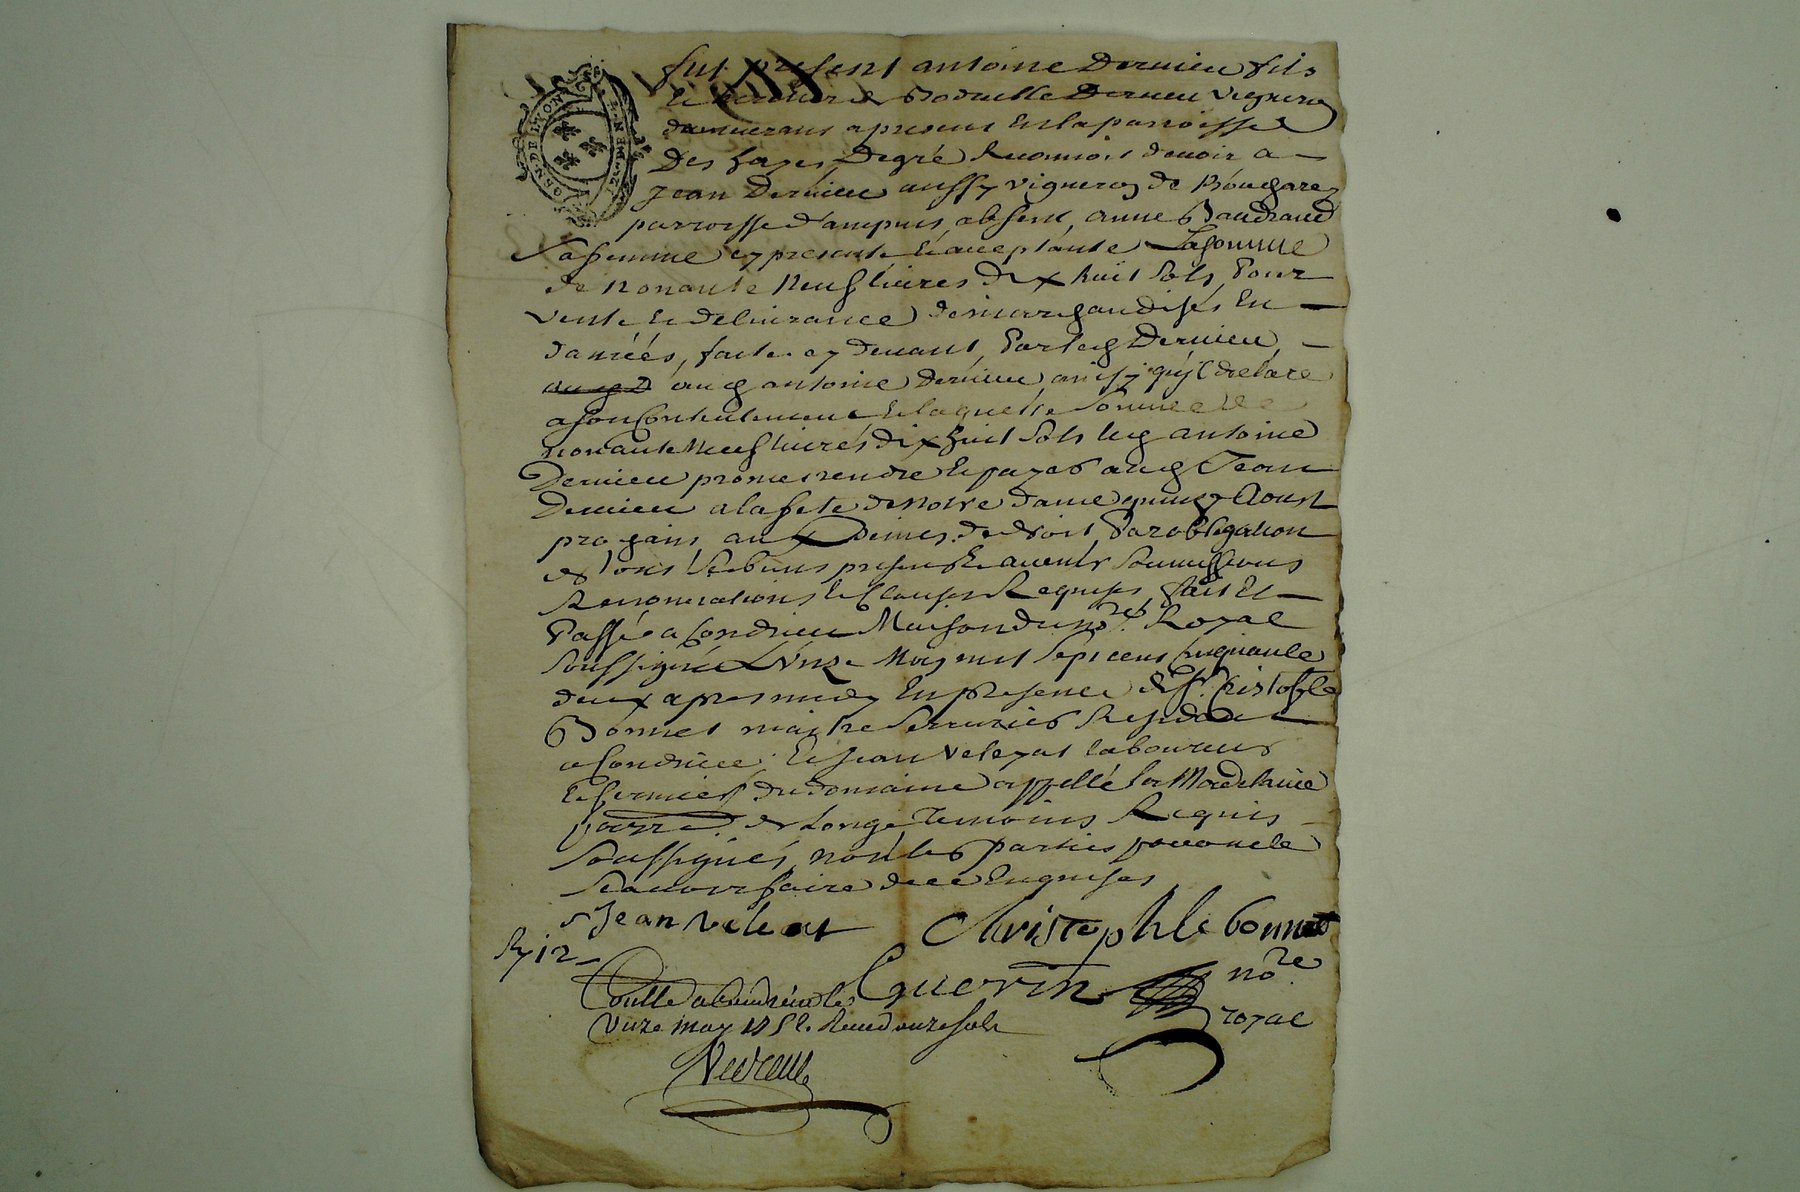 GEN. DE LYON
fut present antoine Dernieu fils
Dernieu vigneron
demeurant a present en la parroisse
Des hayes, De gré Reconnois devoir a
Jean Dernieu aussy vigneron de
parroisse d'ampuis absent, anne Baudrand
sa femme cy presente et acceptante La somme
de nonante neuf livres dix huit sols, Pour
vente et delivrance de marchandises En
danrées, faite cy devant, Par led Dernieu
aud antoine Dernieu ainsy qu'jl declare
a son Contentement Et laquelle somme de
nonante neuf livres dix huit sols led antoine
Dernieu promet rendre Et payer aud Jean
Dernieu a la fete de notre dame quinze Aoust
prochain, aux peines de droit, Par obligation
de tous ses biens presents Et avenir soumissions
Renonciations Et Clauses Requises, fait Et
Passé a Condrieu Maison du nore. Royal
soussigné L'onze May mil sept cens Cinquante
deux apres midy En presence de sr. Cristofle
Bonnet maitre serrurier Residant
a Condrieu, Et Jean Veleyat laboureur
Et fermier du domaine appellé la Madelaine
parre. de Longe Temoins Requis
soussignés, non les parties pour ne le
scavoir faire de ce Enquises
Jean Veleat Christophle bonnet
Ry 12
Guerin nore.
royal
Conllé a Condrieu le
onze may 1752. Reçu douze sols